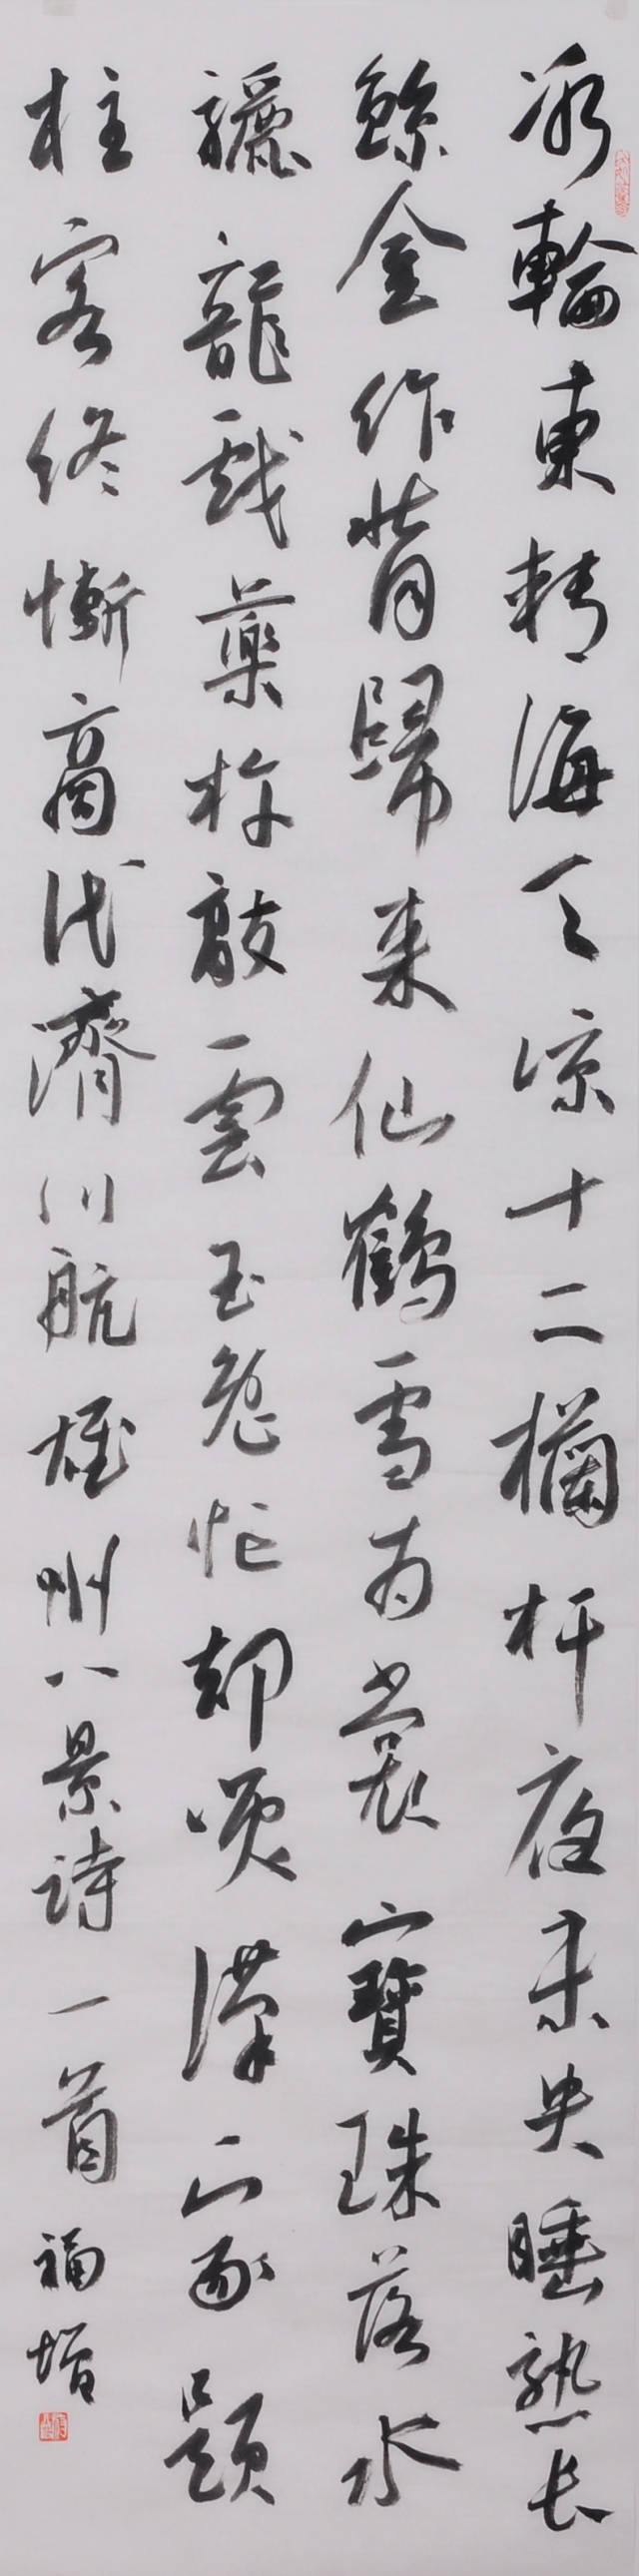 冰輪東轉海天涼十二欄杆夜未央睡熟長
鯨金作背歸来仙鶴雪為裳寶珠落水
驪龍戲藥杵敲雲玉兔忙却咲漢家題
柱客終慚商代濟川航雄州八景詩一首福增